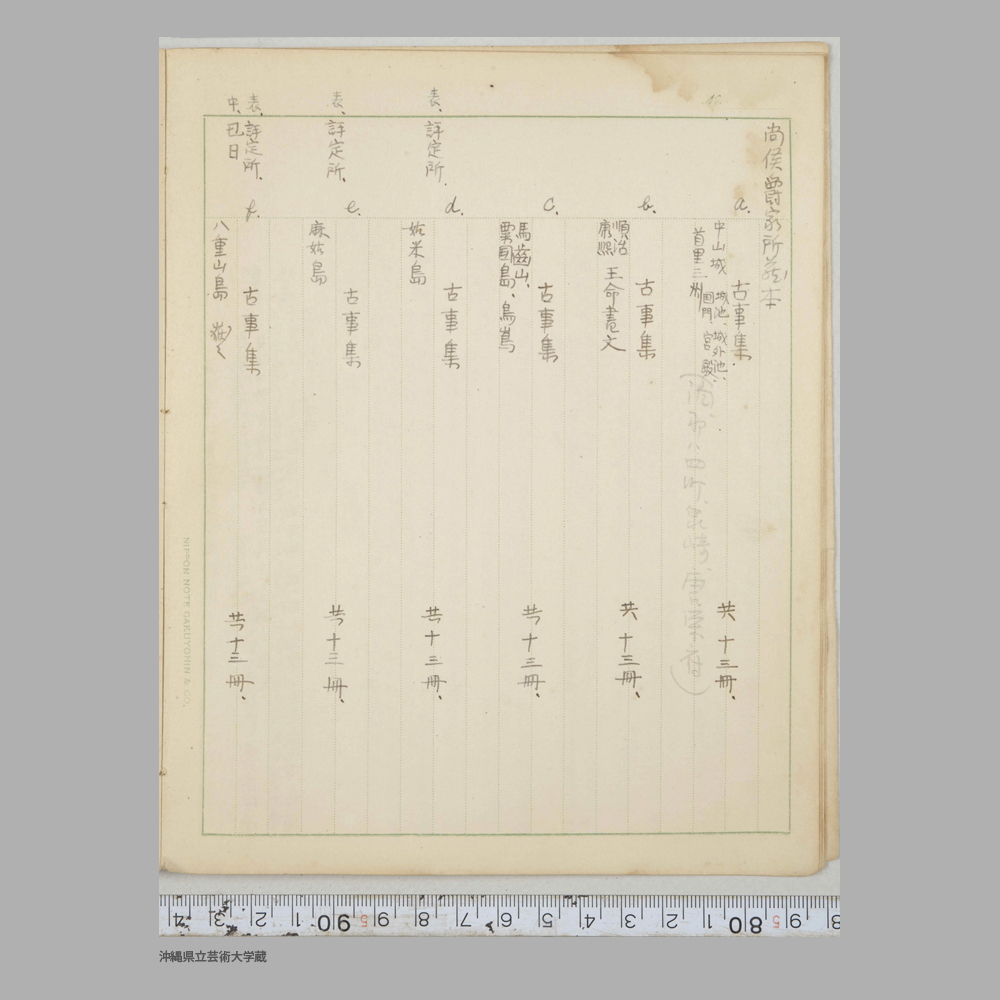 尚侯爵家所蔵本
a.
古事集.
中山城 城池、城外池、
國門、宮殿.
首里三
共十三冊、
b.
古事集
順治
康熙 王命書文
共十三冊、
c.
古事集
馬齒山、
粟国島、鳥嶌
共十三冊、
表、評定所.
d.
古事集
姑米島
共十三冊、
表、評定所.
e.
古事集
麻姑島
共十三冊、
表、評定所.
中、丑日
f.
古事集
八重山島
共十三冊、
NIPPON NOTE GAKUYOHIN & CO.
4 3 2 1 90 5 9 8 7 6 5 4 3 2 1 80 5 9 8
沖縄県立芸術大学蔵